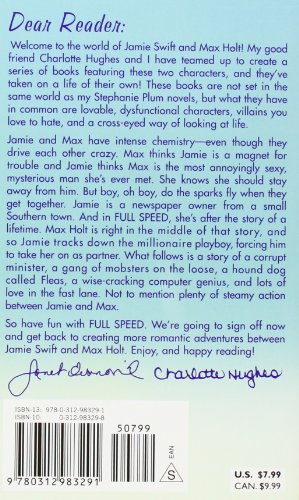 Dear Reader:
Welcome to the world of Jamie Swift and Max Holt! My good
friend Charlotte Hughes and I have teamed up to create a
series of books featuring these two characters, and they've
taken on a life of their own! These books are not set in the
same world as my Stephanie Plum novels, but what they have
in common are lovable, dysfunctional characters, villains you
love to hate, and a cross-eyed way of looking at life.
Jamie and Max have intense chemistry—even though they
drive each other crazy. Max thinks Jamie is a magnet for
trouble and Jamie thinks Max is the most annoyingly sexy,
mysterious man she's ever met. She knows she should stay
away from him. But boy, oh boy, do the sparks fly when they
get together. Jamie is a newspaper owner from a small
Southern town. And in FULL SPEED, she's after the story of a
lifetime. Max Holt is right in the middle of that story, and
so Jamie tracks down the millionaire playboy, forcing him
to take her on as partner. What follows is a story of a corrupt
minister, a gang of mobsters on the loose, a hound dog
called Fleas, a wise-cracking computer genius, and lots of
love in the fast lane. Not to mention plenty of steamy action
between Jamie and Max.
So have fun with FULL SPEED. We're going to sign off now
and get back to creating more romantic adventures between
Jamie Swift and Max Holt. Enjoy, and happy reading!
Janet Evanovich Charlotte Hughes
ISBN-13: 978-0-312-98329-1
ISBN-10: 0-312-98329-8
50799
9 780312 983291
EAN
S
U.S. $7.99
CAN. $9.99